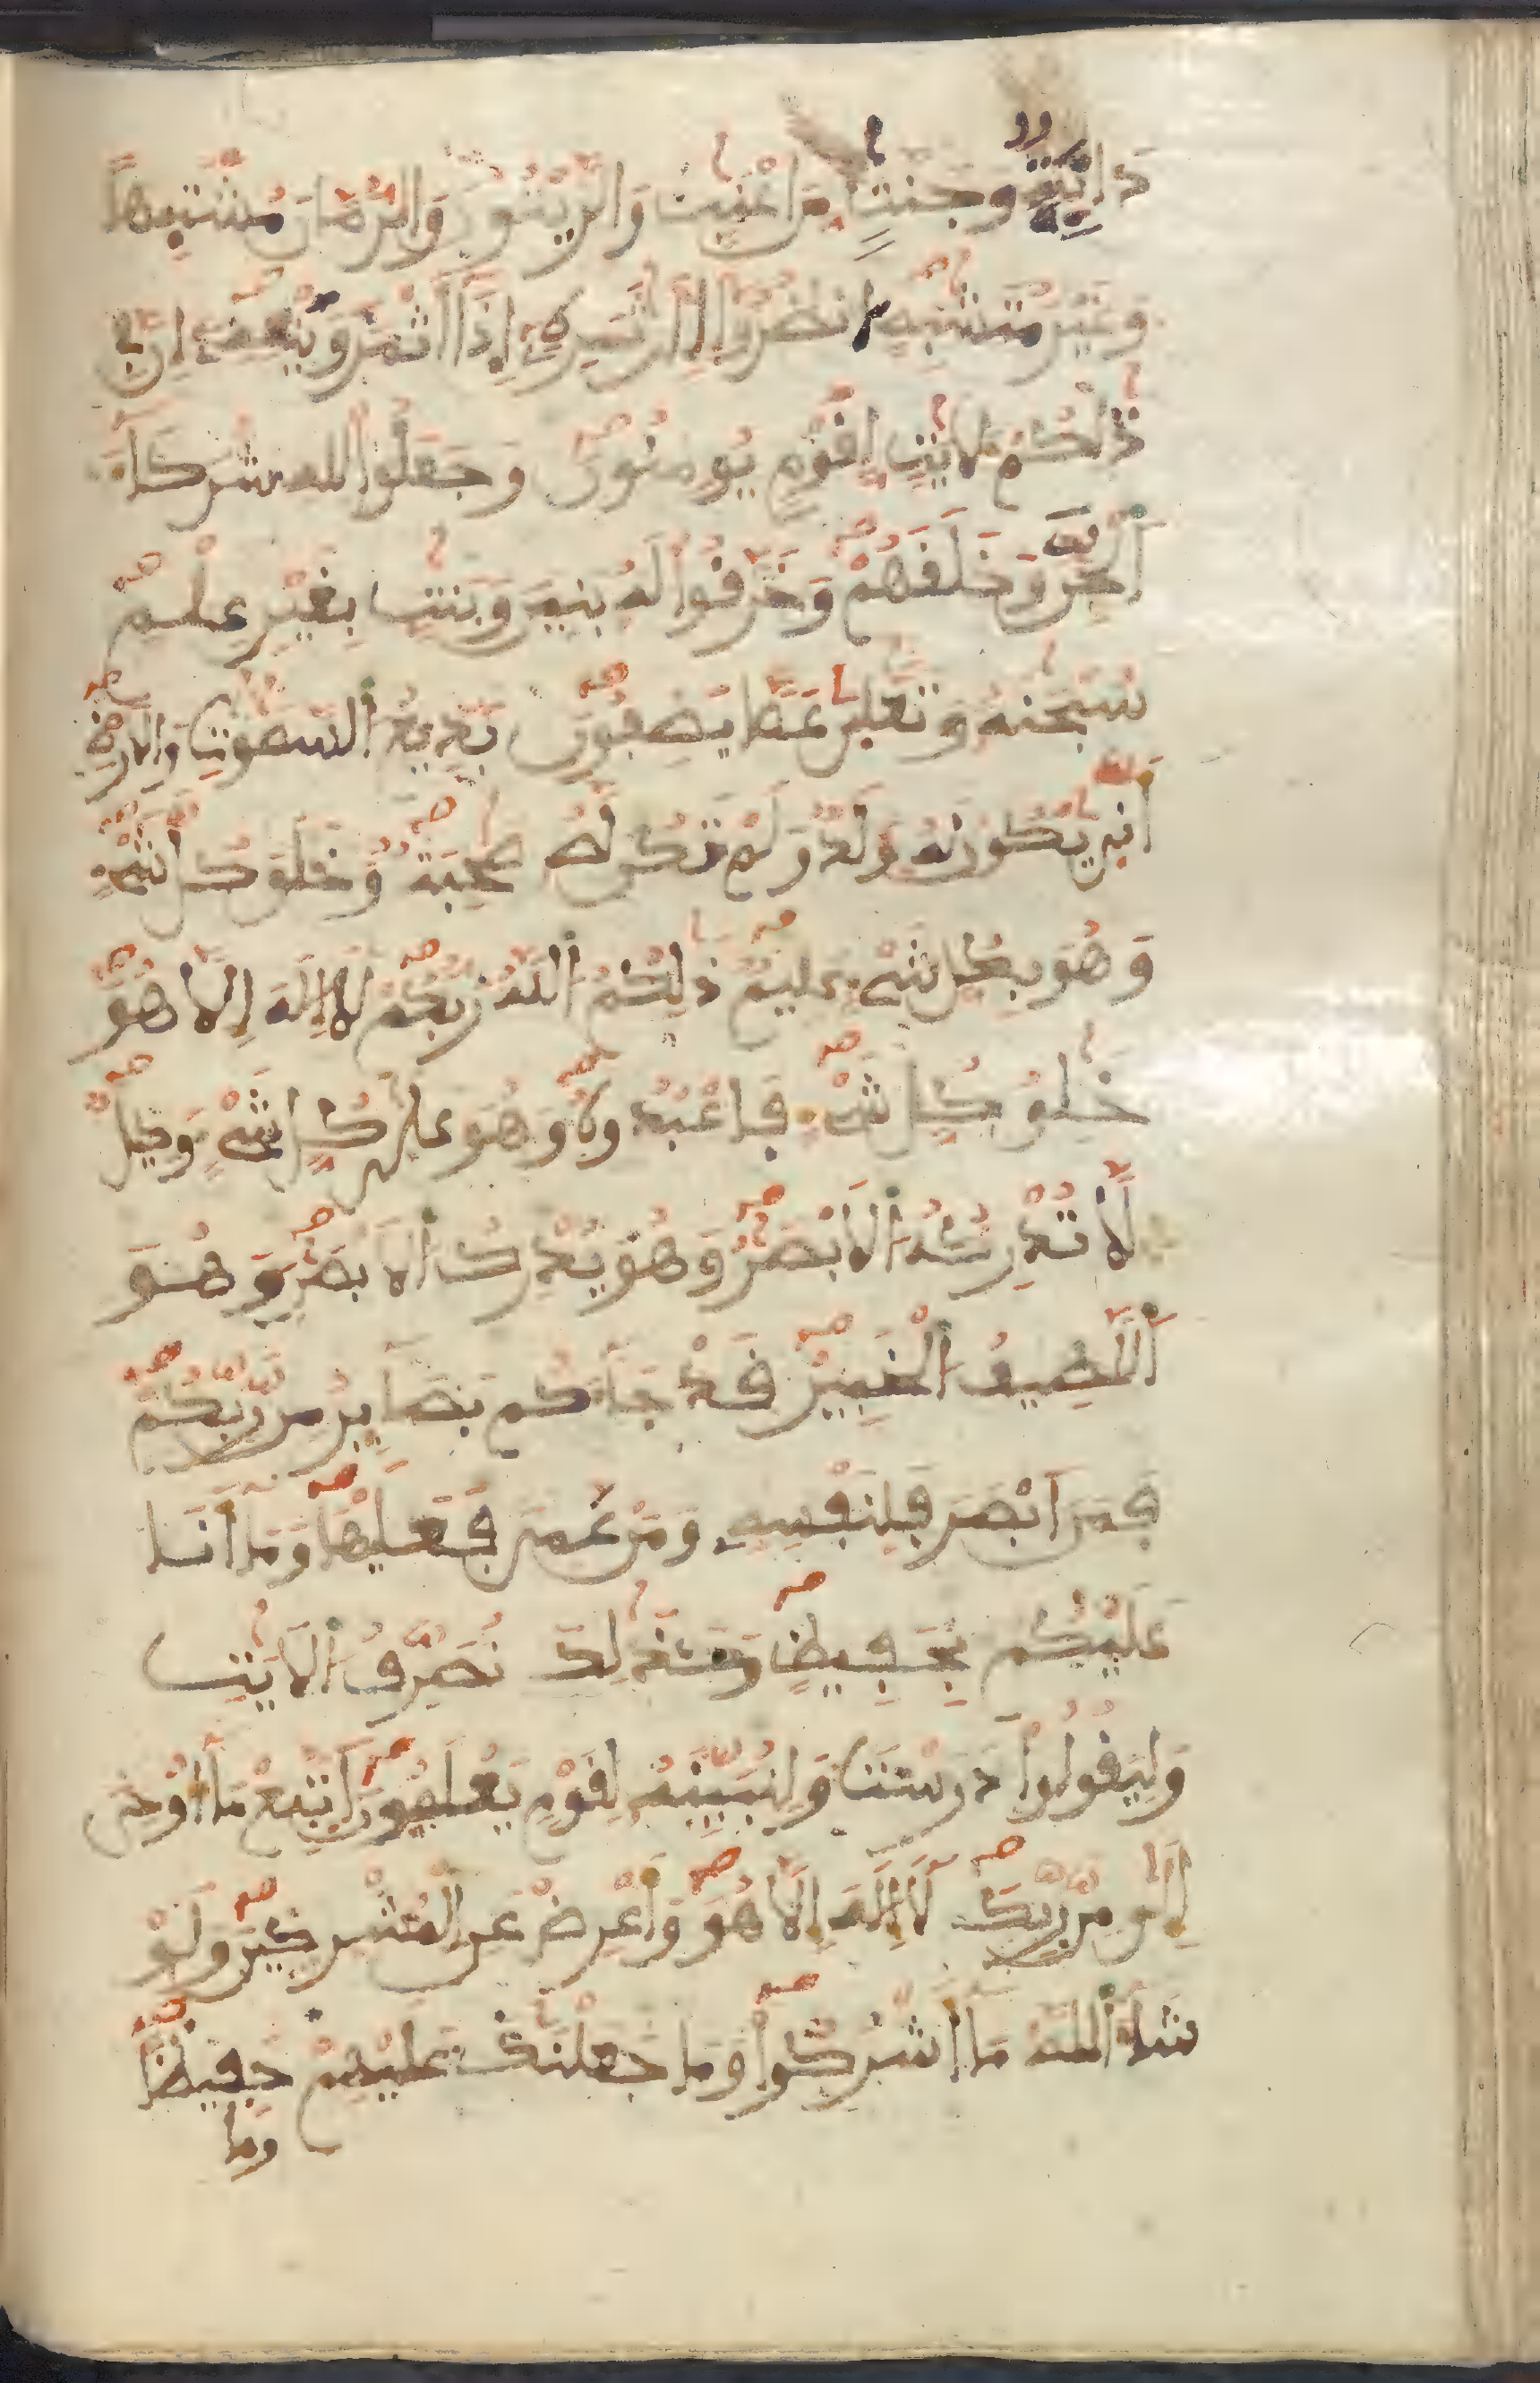 دَانِيَةٌ وَجَنَّتٍ مِّنَ اَعْنَٰبٍ وَالزَّيْتُونَ وَالرُّمَّانَ مُشْتَبِهاً
وَغَيْرَ مُتَشَٰبِهٍ اَنظُرُوٓا إِلَىٰ ثَمَرِهِۦٓ إِذَآ أَثْمَرَ وَيَنْعِهِۦٓ إِنَّ فِى
ذَٰلِكُمْ لَأيَٰتٍ لِّقَوْمٍ يُومِنُونَ وَجَعَلُوا للهِ شُرَكَآءَ
اَلْجِنَّ وَخَلَقَهُمْ وَخَرَّقُوا لَهُۥ بَنِينَ وَبَنَٰتٍ بِغَيْرِ عِلْمٍ
سُبْحَٰنَهُۥ وَتَعَٰلَىٰ عَمَّا يَصِفُونَ بَدِيعُ اُلسَّمَٰوَٰتِ وَالَارْضِ
أَنَّىٰ يَكُونُ لَهُۥ وَلَدٌ وَلَمْ تَكُن لَّهُۥ صَٰحِبَةٌ وَخَلَقَ كُلَّ شَىْءٍ
وَهُوَ بِكُلِّ شَىْءٍ عَلِيمٌ ذَٰلِكُمُ اُللَّهُ رَبُّكُمْ لَآ إِلَٰهَ إِلَّا هُوَ
خَٰلِقُ كُلِّ شَىْءٍ فَاعْبُدُوهُ وَهُوَ عَلَىٰ كُلِّ شَىْءٍ وَكِيلٌ
لَّا تُدْرِكُهُ اُلَابْصَٰرُ وَهُوَ يُدْرِكُ اُلَابْصَٰرَ وَهُوَ
اَللَّطِيفُ اُلْخَبِيرُ قَدْ جَآءَكُم بَصَآئِرُ مِن رَّبِّكُمْ
فَمَنَ اَبْصَرَ فَلِنَفْسِهِۦ وَمَنْ عَمِىَ فَعَلَيْهَا وَمَآ أَنَا
عَلَيْكُم بِحَفِيظٍ وَكَذَٰلِكَ نُصَرِّفُ اُلَايَٰتِ
وَلِيَقُولُوا دَرَسْتَ وَلِنُبَيِّنَهُۥ لِقَوْمٍ يَعْلَمُونَ اَتَّبِعْ مَآ أُوحِىَ
إِلَيْكَ مِن رَّبِّكَ لَآ إِلَٰهَ إِلَّا هُوَ وَأَعْرِضْ عَنِ اِلْمُشْرِكِينَ وَلَوْ
شَآءَ اَللَّهُ مَآ أَشْرَكُوا وَمَا جَعَلْنَٰكَ عَلَيْهِمْ حَفِيظاً
وَمَا